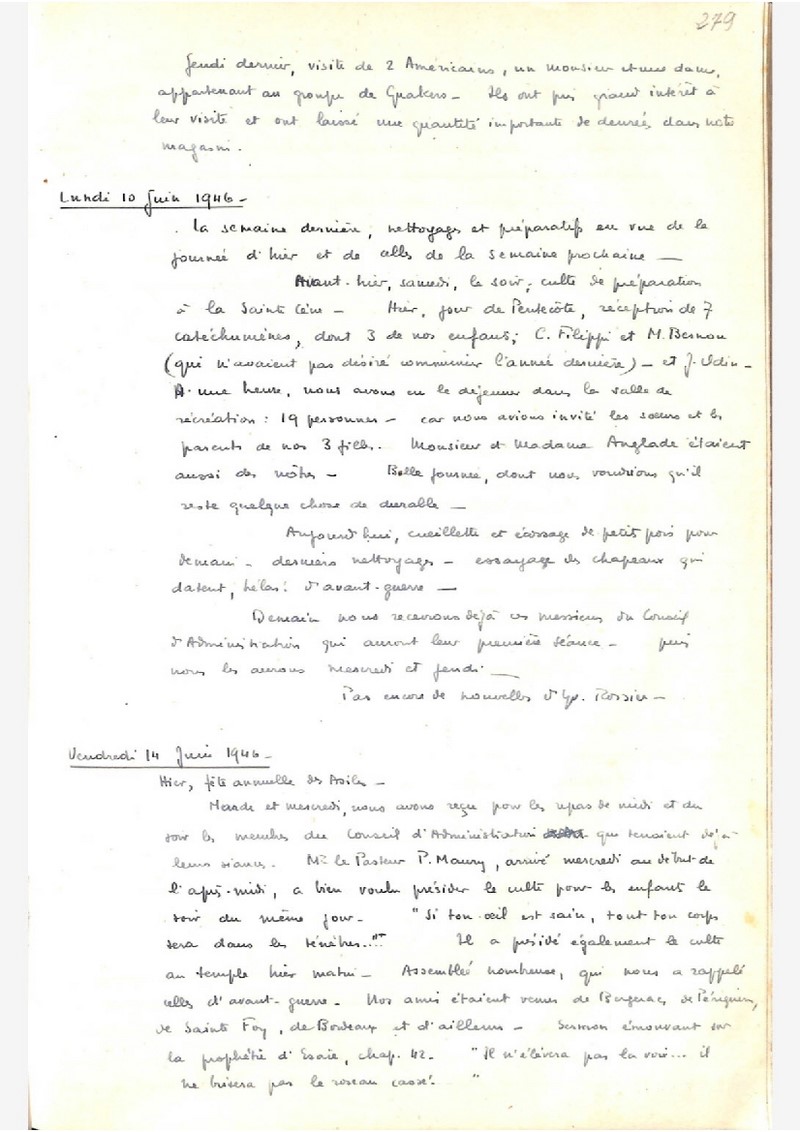 279
Jeudi dernier, visite de 2 Américains, un monsieur et une dame,
appartenant au groupe de Quakers - Ils ont pris grand intérêt à
leur visite et ont laissé une quantité importante de denrées dans notre
magasin.
Lundi 10 Juin 1946 -
La semaine dernière, nettoyages et préparatifs en vue de la
journée d'hier et de celles de la semaine prochaine —
Avant-hier, samedi, le soir, culte de préparation
à la Sainte Cène - Hier, jour de Pentecôte, réception de 7
catéchumènes, dont 3 de nos enfants; C. Filippi et M. Besnou
(qui n'avaient pas désiré communier l'année dernière) - et J. Udin -
A une heure, nous avons eu le déjeuner dans la salle de
récréation : 19 personnes - car nous avions invité les sœurs et les
parents de nos 3 filles. Monsieur et Madame Anglade étaient
aussi des nôtres - Belle journée, dont nous voudrions qu'il
reste quelque chose de durable —
Aujourd'hui, cueillette et écossage de petits pois pour
demain - derniers nettoyages - essayage des chapeaux qui
datent, hélas! d'avant-guerre —
Demain nous recevrons déjà ces messieurs du Conseil
d'Administration qui auront leur première séance - puis
nous les aurons mercredi et jeudi. —
Pas encore de nouvelles d'Yv. Rossier -
Vendredi 14 Juin 1946 -
Hier, fête annuelle des Asiles -
Mardi et mercredi, nous avons reçu pour les repas de midi et du
soir les membres du Conseil d'Administration qui tenaient déjà
leurs séances. Mr le Pasteur P. Maury, arrivé mercredi au début de
l'après-midi, a bien voulu présider le culte pour les enfants le
soir du même jour - "Si ton œil est sain, tout ton corps
sera dans les ténèbres..." Il a présidé également le culte
au temple hier matin - Assemblée nombreuse, qui nous a rappelé
celles d'avant-guerre - Nos amis étaient venus de Bergerac, de Périgueux,
de Sainte Foy, de Bordeaux et d'ailleurs - Sermon émouvant sur
la prophétie d'Esaïe, chap. 42. "Il n'élèvera pas la voix... il
ne brisera pas le roseau cassé. "